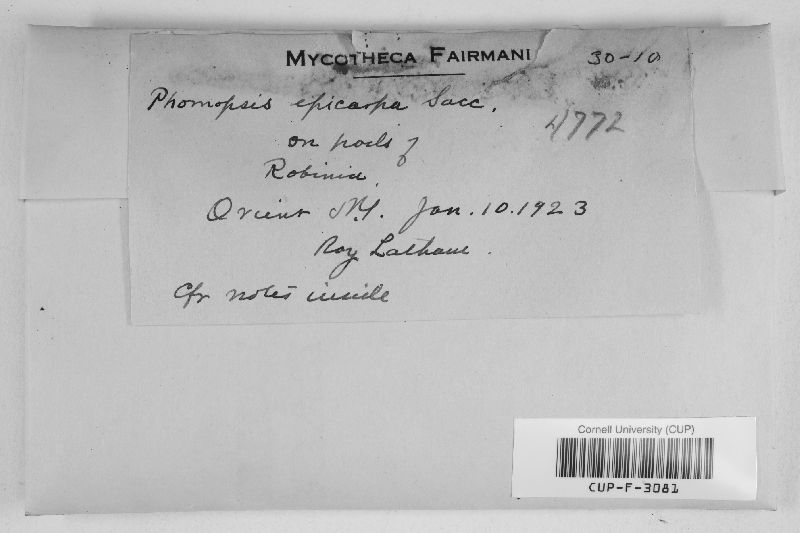 MYCOTHECA FAIRMANI 30-10
Phomopsis epicarpa Sacc.
4772
on pods of
Robinia
Orient N.Y. Jan. 10. 1923
Roy Latham.
Cfr notes inside
Cornell University (CUP)
CUP-F-3081